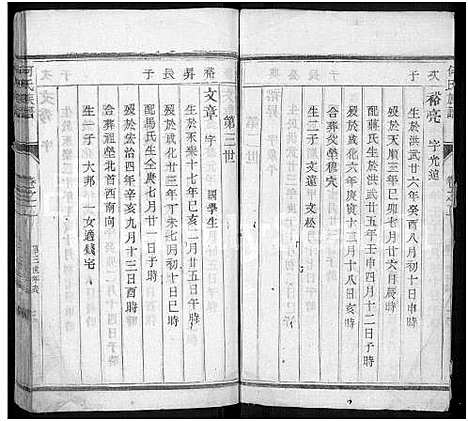 何氏族譜
次 裕亮 字光遠
子
生於洪武廿六年癸酉八月初十日申時
歿於天順三年己卯七月廿六日辰時
配蔣氏生於洪武廿五年壬申四月十二日子時
歿於成化六年庚寅十三月
合葬炎黎穆穴
生二子 文遠 文松
第三世
裕昇長子
文章 字 國學生
生於永樂十七年己亥二月廿五日午時
歿於成化廿三年丁未七月初十日巳時
配馮氏生全庚七月廿一日子時
歿於弘治四年辛亥九月十三日酉時
合葬祖塋北首西南向
生一子 大邦 一女適錢宅
何氏族譜
卷之
第三世年表